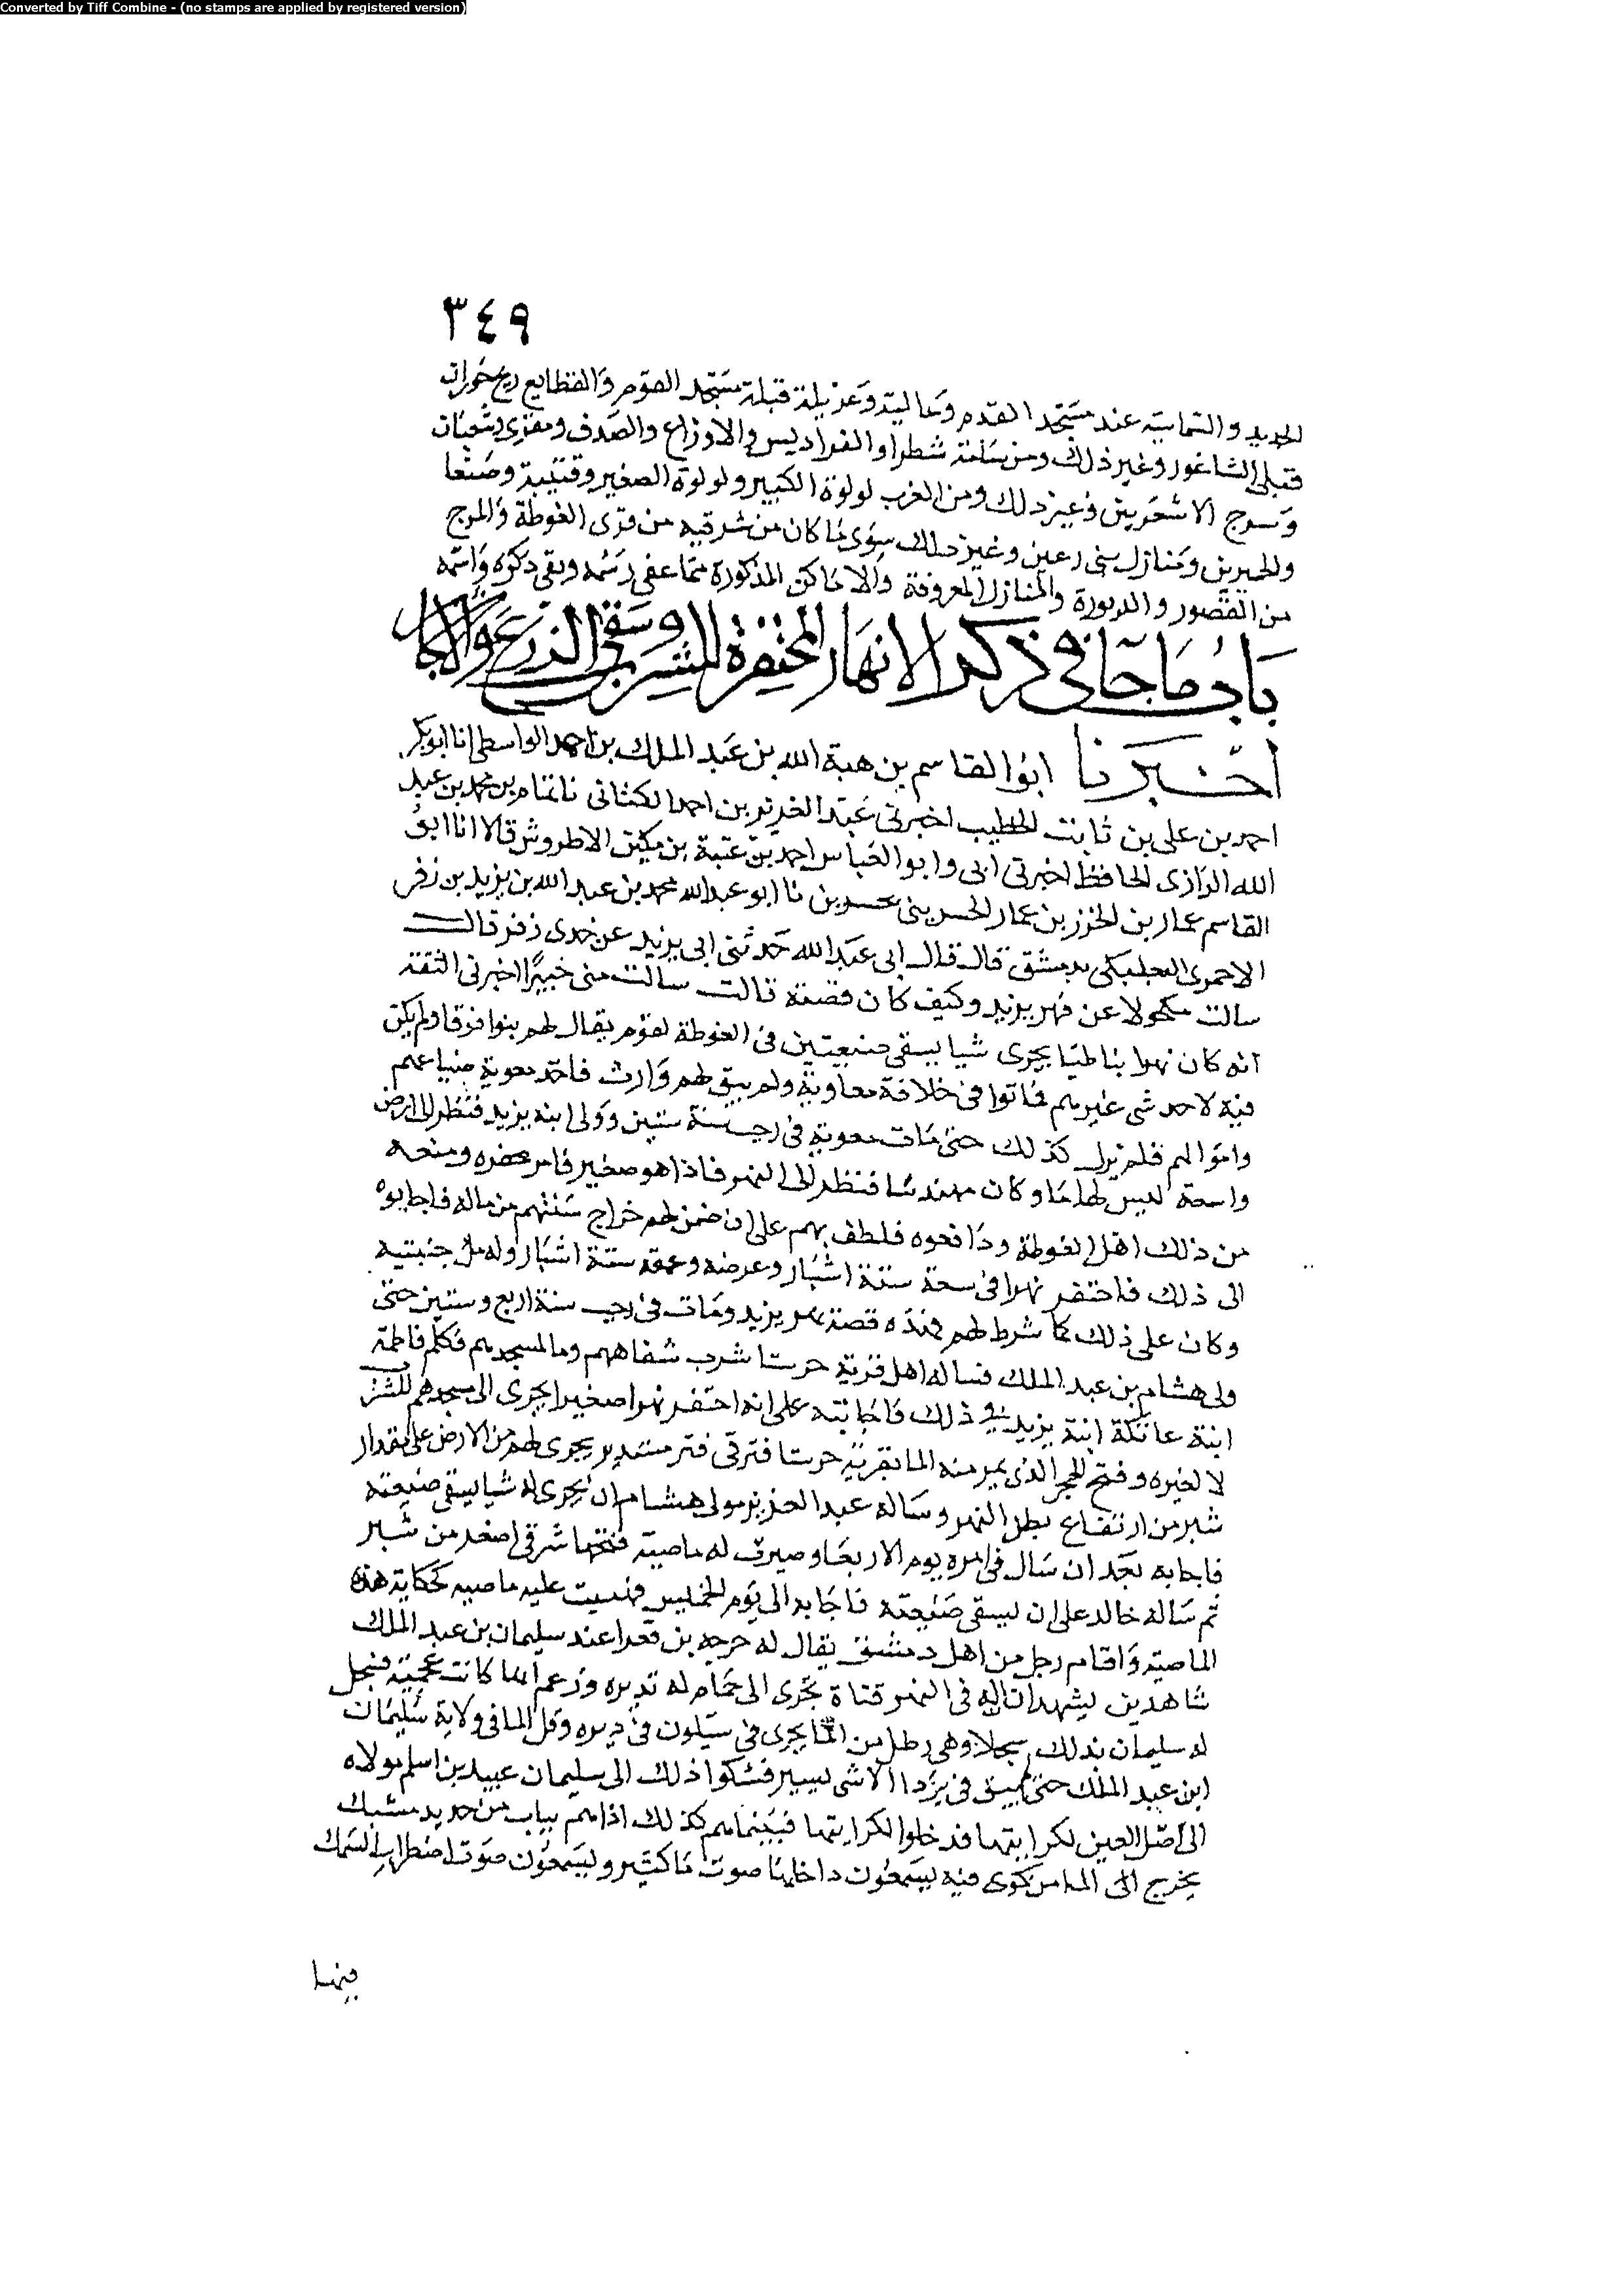 Converted by Tiff Combine - (no stamps are applied by registered version)
٣٤٩
الحديد والثمانية عند مسجد القدم وعالية وعذيلة قبلة مسجد الصوم والقطايع ربع حوران
قبلى الشاغور وغير ذلك ومن شامة شطرا والفراديس والاوزاع والصدف ومقرى وشعبان
وسرج الاشعريين وغير ذلك ومن الغرب لولوة الكبير ولولوة الصغير وقتيبة وصنعا
والحميريين ومنازل بنى رعين وغير ذلك سوى ما كان من شرقيه من قرى الغوطة والمرج
من القصور والدورة والمنازل المعروفة والاماكن المذكورة مما عفى رسمه وبقى ذكره واسمه
باب ما جا فى ذكر الانهار المحتفرة للشرب وسقى الزرع والاشجار
اخبرنا ابو القاسم بن هبة الله بن عبد الملك بن احمد الواسطى انا ابو بكر
احمد بن على بن ثابت الخطيب اخبرنى عبد العزيز بن احمد الكتانى نا تمام بن محمد بن عبد
الله الرازى الحافظ اخبرنى ابى وابو العباس احمد بن عتبة بن مكين الاطروش قالا انا ابو
القاسم عمار بن الخزر بن عمار الحسرينى بحسرين نا ابو عبد الله محمد بن عبد الله بن يزيد بن زفر
الاحمرى البعلبكى بدمشق قال قال ابى عبد الله حدثنى ابى يزيد عن جدى زفر قال
سالت مكحولا عن نهر يزيد وكيف كان قصته قالت سالت منى خبيرا اخبرنى الثقة
انه كان نهرا بناطيا يجرى شيا يسقى ضيعتين فى الغوطة لقوم يقال لهم بنوا فوقا ولم يكن
فيه لاحد شى غيرهم فماتوا فى خلافة معاوية ولم يبق لهم وارث فاخذ معوية ضياعهم
واموالهم فلم يزل كذلك حتى مات معوية فى رجب سنة ستين وولى ابنه يزيد فنظر الى ارض
واسعة ليس لها ما وكان مهندسا فنظر الى النهر فاذا هو صغير فامر بحفره ومنعه
من ذلك اهل الغوطة ودافعوه فلطف بهم على ان ضمن لهم خراج سنتهم من ماله فاجابوه
الى ذلك فاحتفر نهرا فى سعة ستة اشبار وعرضه وعمقه ستة اشبار وله مل جنبتيه
وكان على ذلك كما شرط لهم فهذه قصة نهر يزيد ومات فى رجب سنة اربع وستين حتى
ولى هشام بن عبد الملك فساله اهل قرية حرستا شرب شفاههم وما لمسجدهم فكلم فاطمة
ابنة عاتكة ابنة يزيد فى ذلك فاجابته على انه احتفر نهرا صغيرا يجرى الى مسجدهم للشرب
لا لغيره وفتح الحجر الذى يمر منه الما بقرية حرستا فتر فى فتر مستدير يجرى لهم من الارض على مقدار
شبر من ارتفاع بطن النهر وساله عبد العزيز مولى هشام ان يجرى له شيا يسقى ضيعته
فاجابه بعد ان سال فى امره يوم الاربعا وصيرت له ماصية فتحها شرقى اصغر من شبر
ثم ساله خالد على ان يسقى ضيعته فاجابه الى يوم الخميس فهيت عليه ماصيه كحكاية هذه
الماصية واقام رجل من اهل دمشق يقال له حرجه بن قعرا عند سليمان بن عبد الملك
شاهدين يشهدان له فى النهر قناة تجرى الى حمام له تديره وزعم انها كانت عجمية فسجل
له سليمان بذلك سجلا وهى رطل من الما يجرى فى سيلون فى ديره وقل الما فى ولاية سليمان
ابن عبد الملك حتى لم يبق فى بردا الا شى يسير فشكوا ذلك الى سليمان عبيد بن اسلم مولاه
الى اصل العين لكرايتها فدخلوا لكرايتها فبينما هم كذلك اذا هم بباب من حديد مشبك
يخرج الى الما من كوى فيه يسمعون داخلها صوت ما كثير ويسمعون صوت اضطراب السمك
فيها